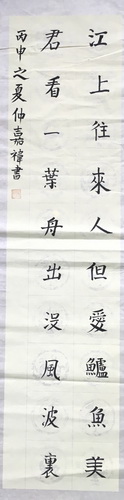 江上往來人但愛鱸魚美
君看一葉舟出沒風波裏
丙申之夏仲嘉禕書